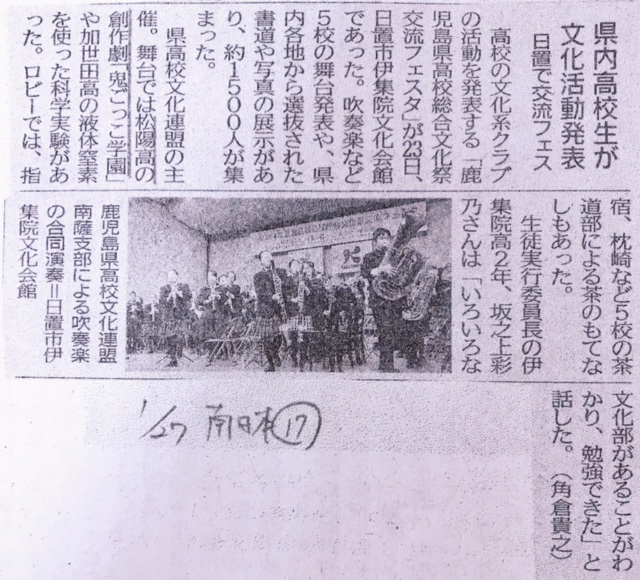 県内高校生が
文化活動発表
日置で交流フェス
高校の文化系クラブ
の活動を発表する「鹿
児島県高校総合文化祭
交流フェスタ」が23日、
日置市伊集院文化会館
であった。吹奏楽など
5校の舞台発表や、県
内各地から選抜された
書道や写真の展示があ
り、約1500人が集
まった。
県高校文化連盟の主
催。舞台では松陽高の
創作劇「鬼ごっこ学園」
や加世田高の液体窒素
を使った科学実験があ
った。ロビーでは、指
宿、枕崎など5校の茶
道部による茶のもてな
しもあった。
生徒実行委員長の伊
集院高2年、坂之上彩
乃さんは「いろいろな
文化部があることがわ
かり、勉強できた」と
話した。（角倉貴之）
鹿児島県高校文化連盟
南薩支部による吹奏楽
の合同演奏＝日置市伊
集院文化会館
1/27 南日本 17